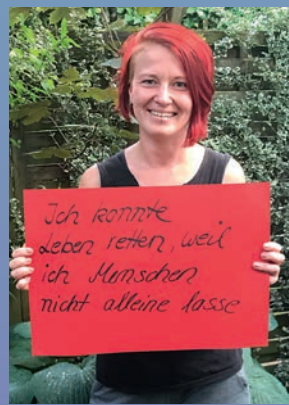 Ich konnte
Leben retten, weil
ich Menschen
nicht alleine lasse